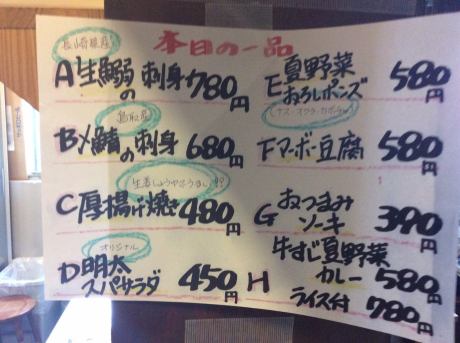 本日の一品
長崎県産
A生鰯の刺身780円
鳥取産
B〆鯖の刺身680円
生姜しょうゆでどうぞ!!
C厚揚げ焼き480円
オリジナル
D明太
スパサラダ 450円
E夏野菜
おろしポンズ 580円
(ナス・オクラ・カボチャ)
Fマーボー豆腐 580円
Gおつまみ
ソーキ 390円
H牛すじ夏野菜
カレー 580円
ライス付 780円